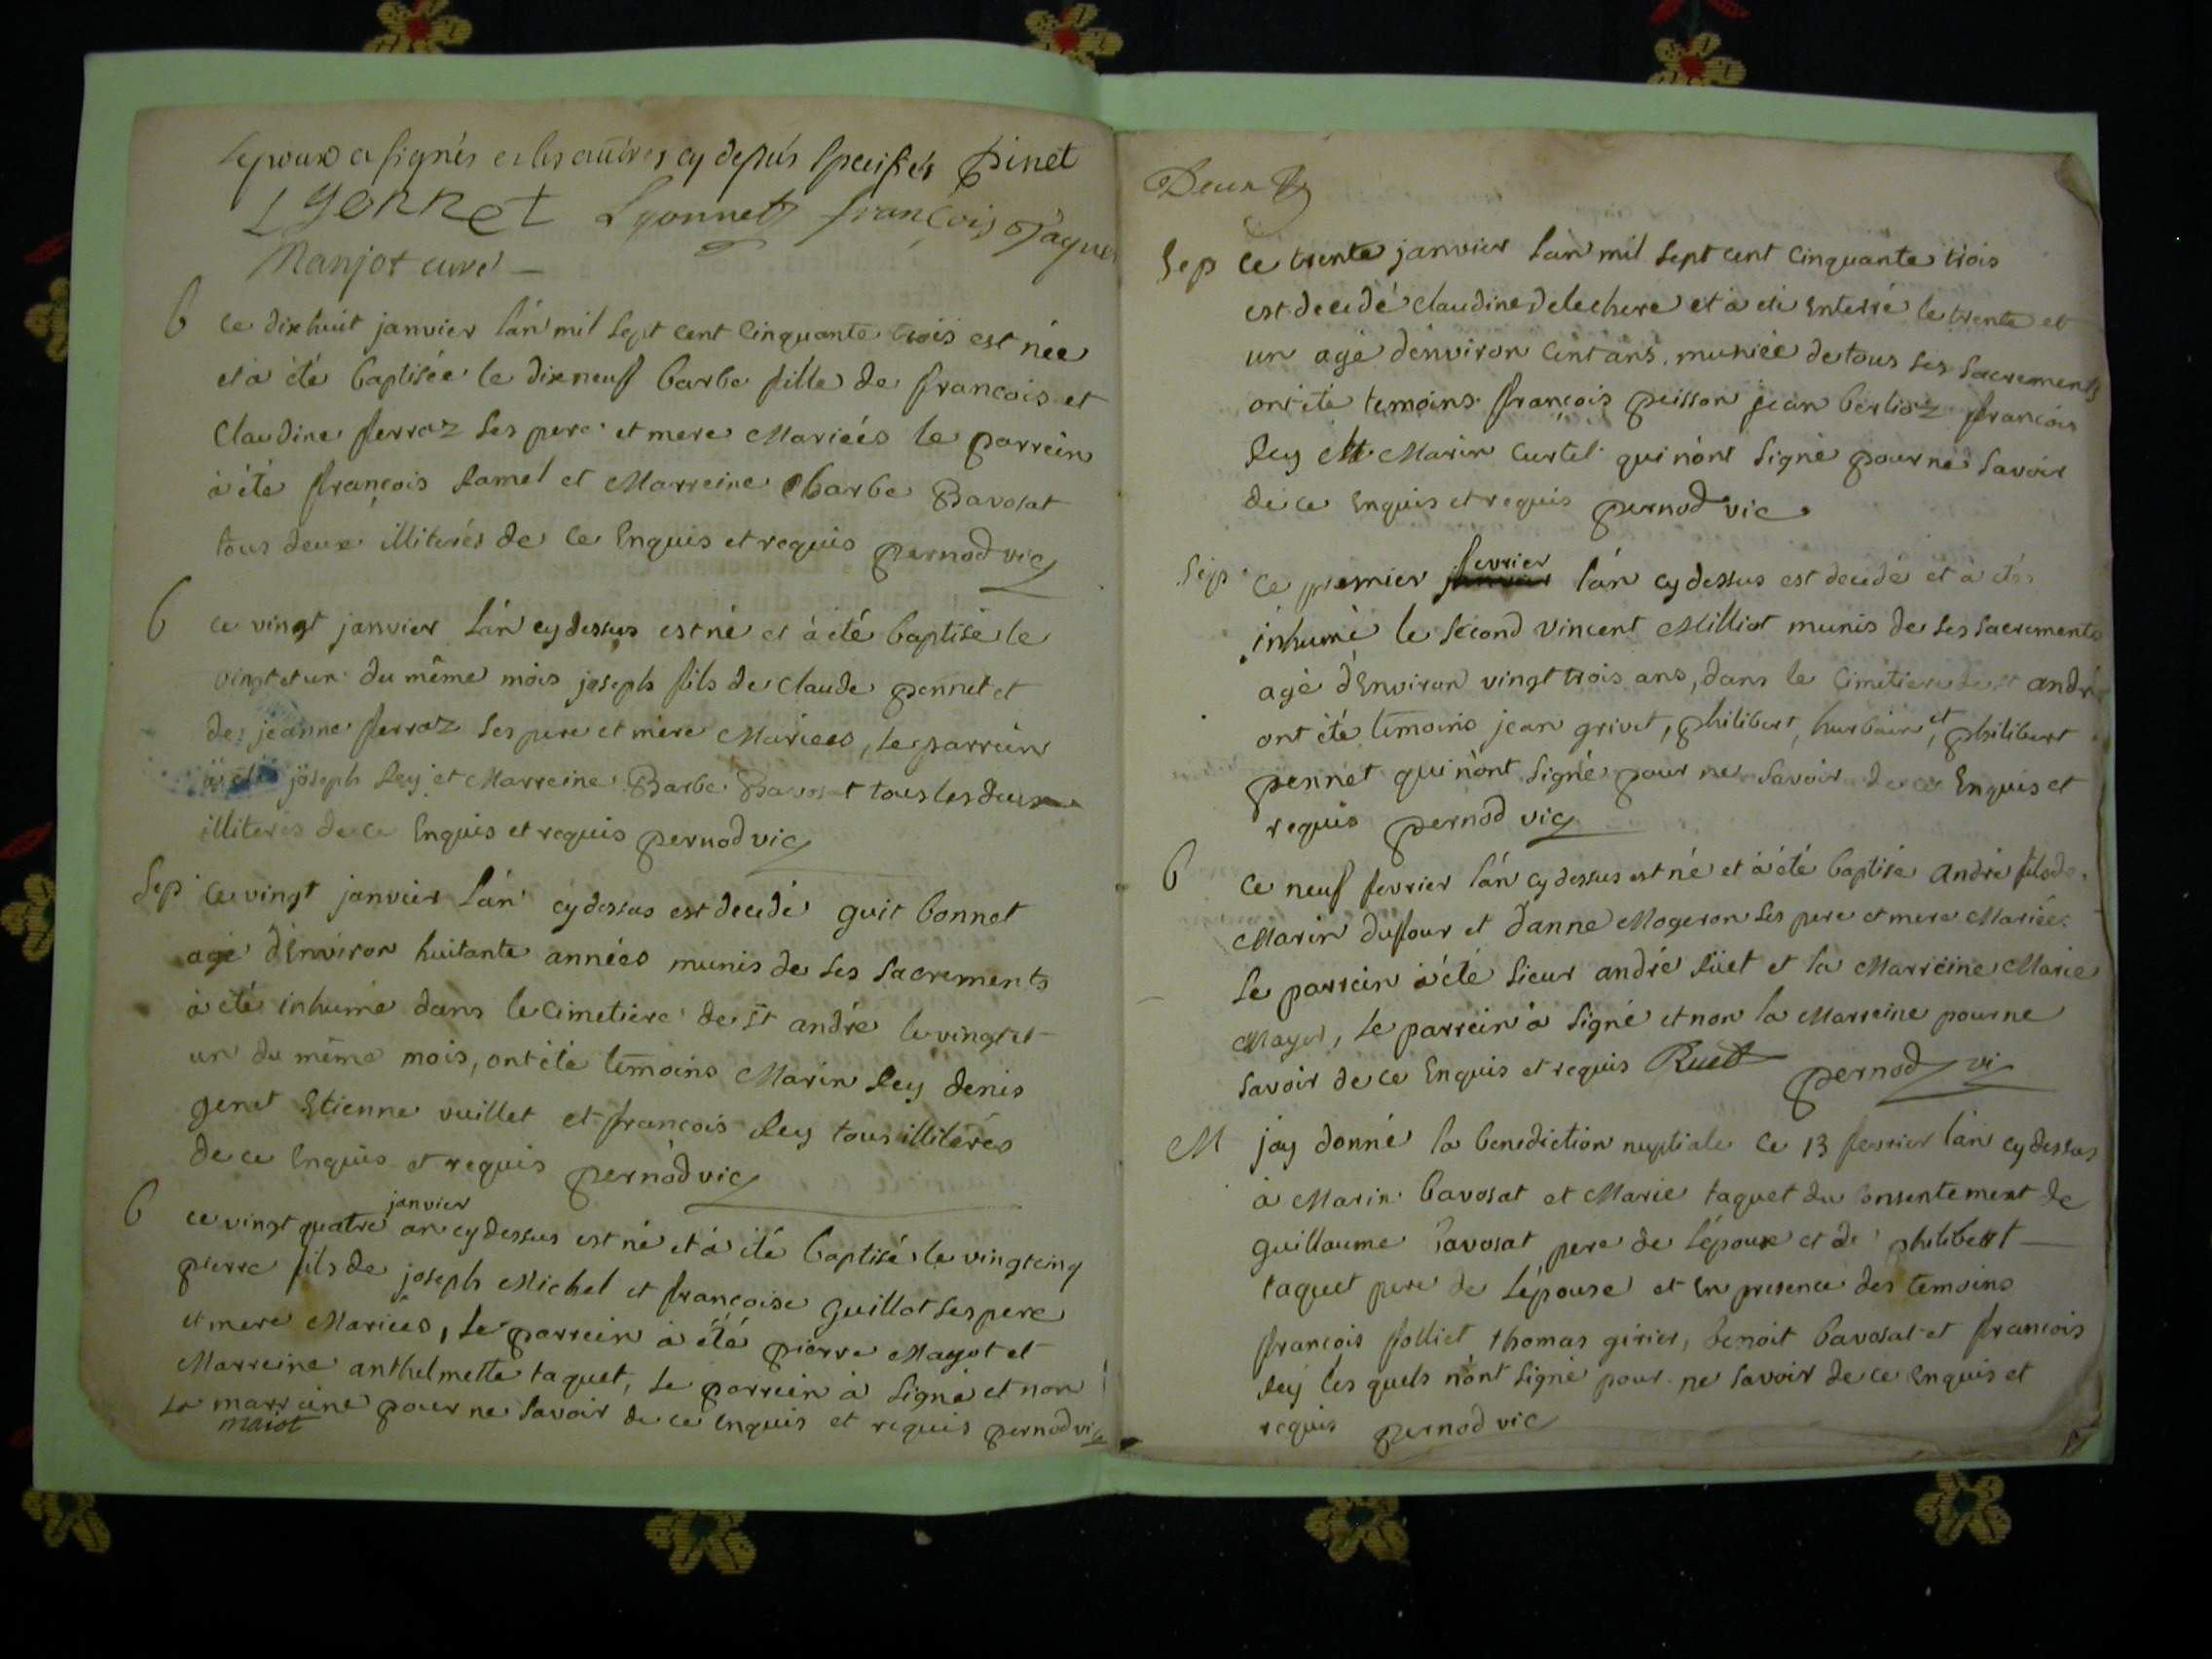 Lepoux a signés et les autres cy dessus specifiés pinet
LYONNET Lyonnet françois Jaque
Manjot curé
b ce dixhuit janvier lán mil sept cent cinquante trois est née
et à été baptisée le dixneuf barbe fille de francois et
Claudine ferroz ses pere et mere Mariéés le parrein
à été françois Ramel et Marreine Barbe Bavosat
tous deux illiterés de ce Enquis et requis pernod vic
b ce vingt janvier lán cydessus est né et à été baptisé le
vingt et un du même mois joseph fils de claude pennet et
de jeanne ferroz ses pere et mere Mariees, le parrein
à été joseph Rey et Marreine Barbe Bavosat tous les deux
illiterés de ce Enquis et requis pernod vic
Sep ce vingt janvier lán cydessus est decedé guit bonnet
agé dEnviron huitante années munis de ses sacrements
à été inhumé dans le cimetiere de st andré le vingt et
un du même mois, ont été témoins Marin Rey denis
genet Etienne vuillet et francois Rey tous illiterés
de ce Enquis et requis pernod vic
janvier
b ce vingt quatre an cydessus est né et à été baptisé le vingt cinq
pierre fils de joseph Michel et françoise guillot ses pere
et mere Mariées, le parrein à été pierre Mayot et
Marreine anthelmette taquet, le parrein à signé et non
la marreine pour ne savoir de ce Enquis et requis pernod vic
maiot
Deux
Sep ce trente janvier lán mil sept cent cinquante trois
est decedé claudine delechere et à été Enterré le trente et
un agé d'environ cent ans, muniée de tous ses sacrements
ont été temoins françois peisson jean berlioz francois
Rey et Marin curtel qui nónt signé pour ne savoir
de ce Enquis et requis pernod vic
fevrier
Sep ce premier lán cydessus est decedé et à été
inhumé le second vincent Milliot munis de ses sacrements
agé dEnviron vingt trois ans, dans le cimetiere de st andré
ont été témoins jean grivet, philibert hurbain, et philibert
pennet qui nónt signé pour ne savoir de ce Enquis et
requis pernod vic
b ce neuf fevrier lán cydessus est né et à été baptisé André fils de
Marin dufour et dànne Mogeron ses pere et mere Mariées
Le parrein à été sieur andré Rüet et la Marreine Marie
Mayot, le parrein à signé et non la Marreine pour ne
savoir de ce Enquis et requis Ruet pernod vi
M jay donné la benediction nuptiale ce 13 fevrier lán cydessus
à Marin bavosat et Marie taquet du consentement de
guillaume Bavosat pere de Lépoux et de philibert
taquet pere de Lépouse et En presence des temoins
francois folliet, thomas girier, benoit bavosat et francois
Rey les quels nónt signé pour ne savoir de ce Enquis et
requis pernod vic